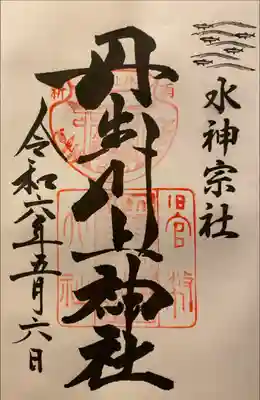 水神宗社
丹生川上神社
令和六年五月六日